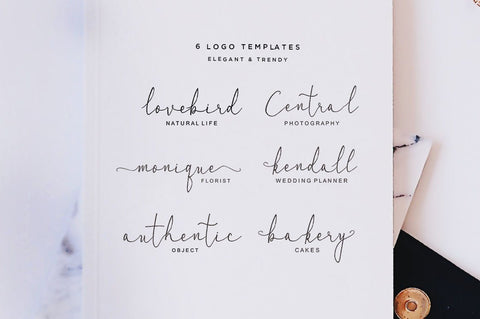 6 LOGO TEMPLATES
ELEGANT & TRENDY
lovebird
NATURAL LIFE
Central
PHOTOGRAPHY
monique
FLORIST
kendall
WEDDING PLANNER
authentic
OBJECT
bakery
CAKES